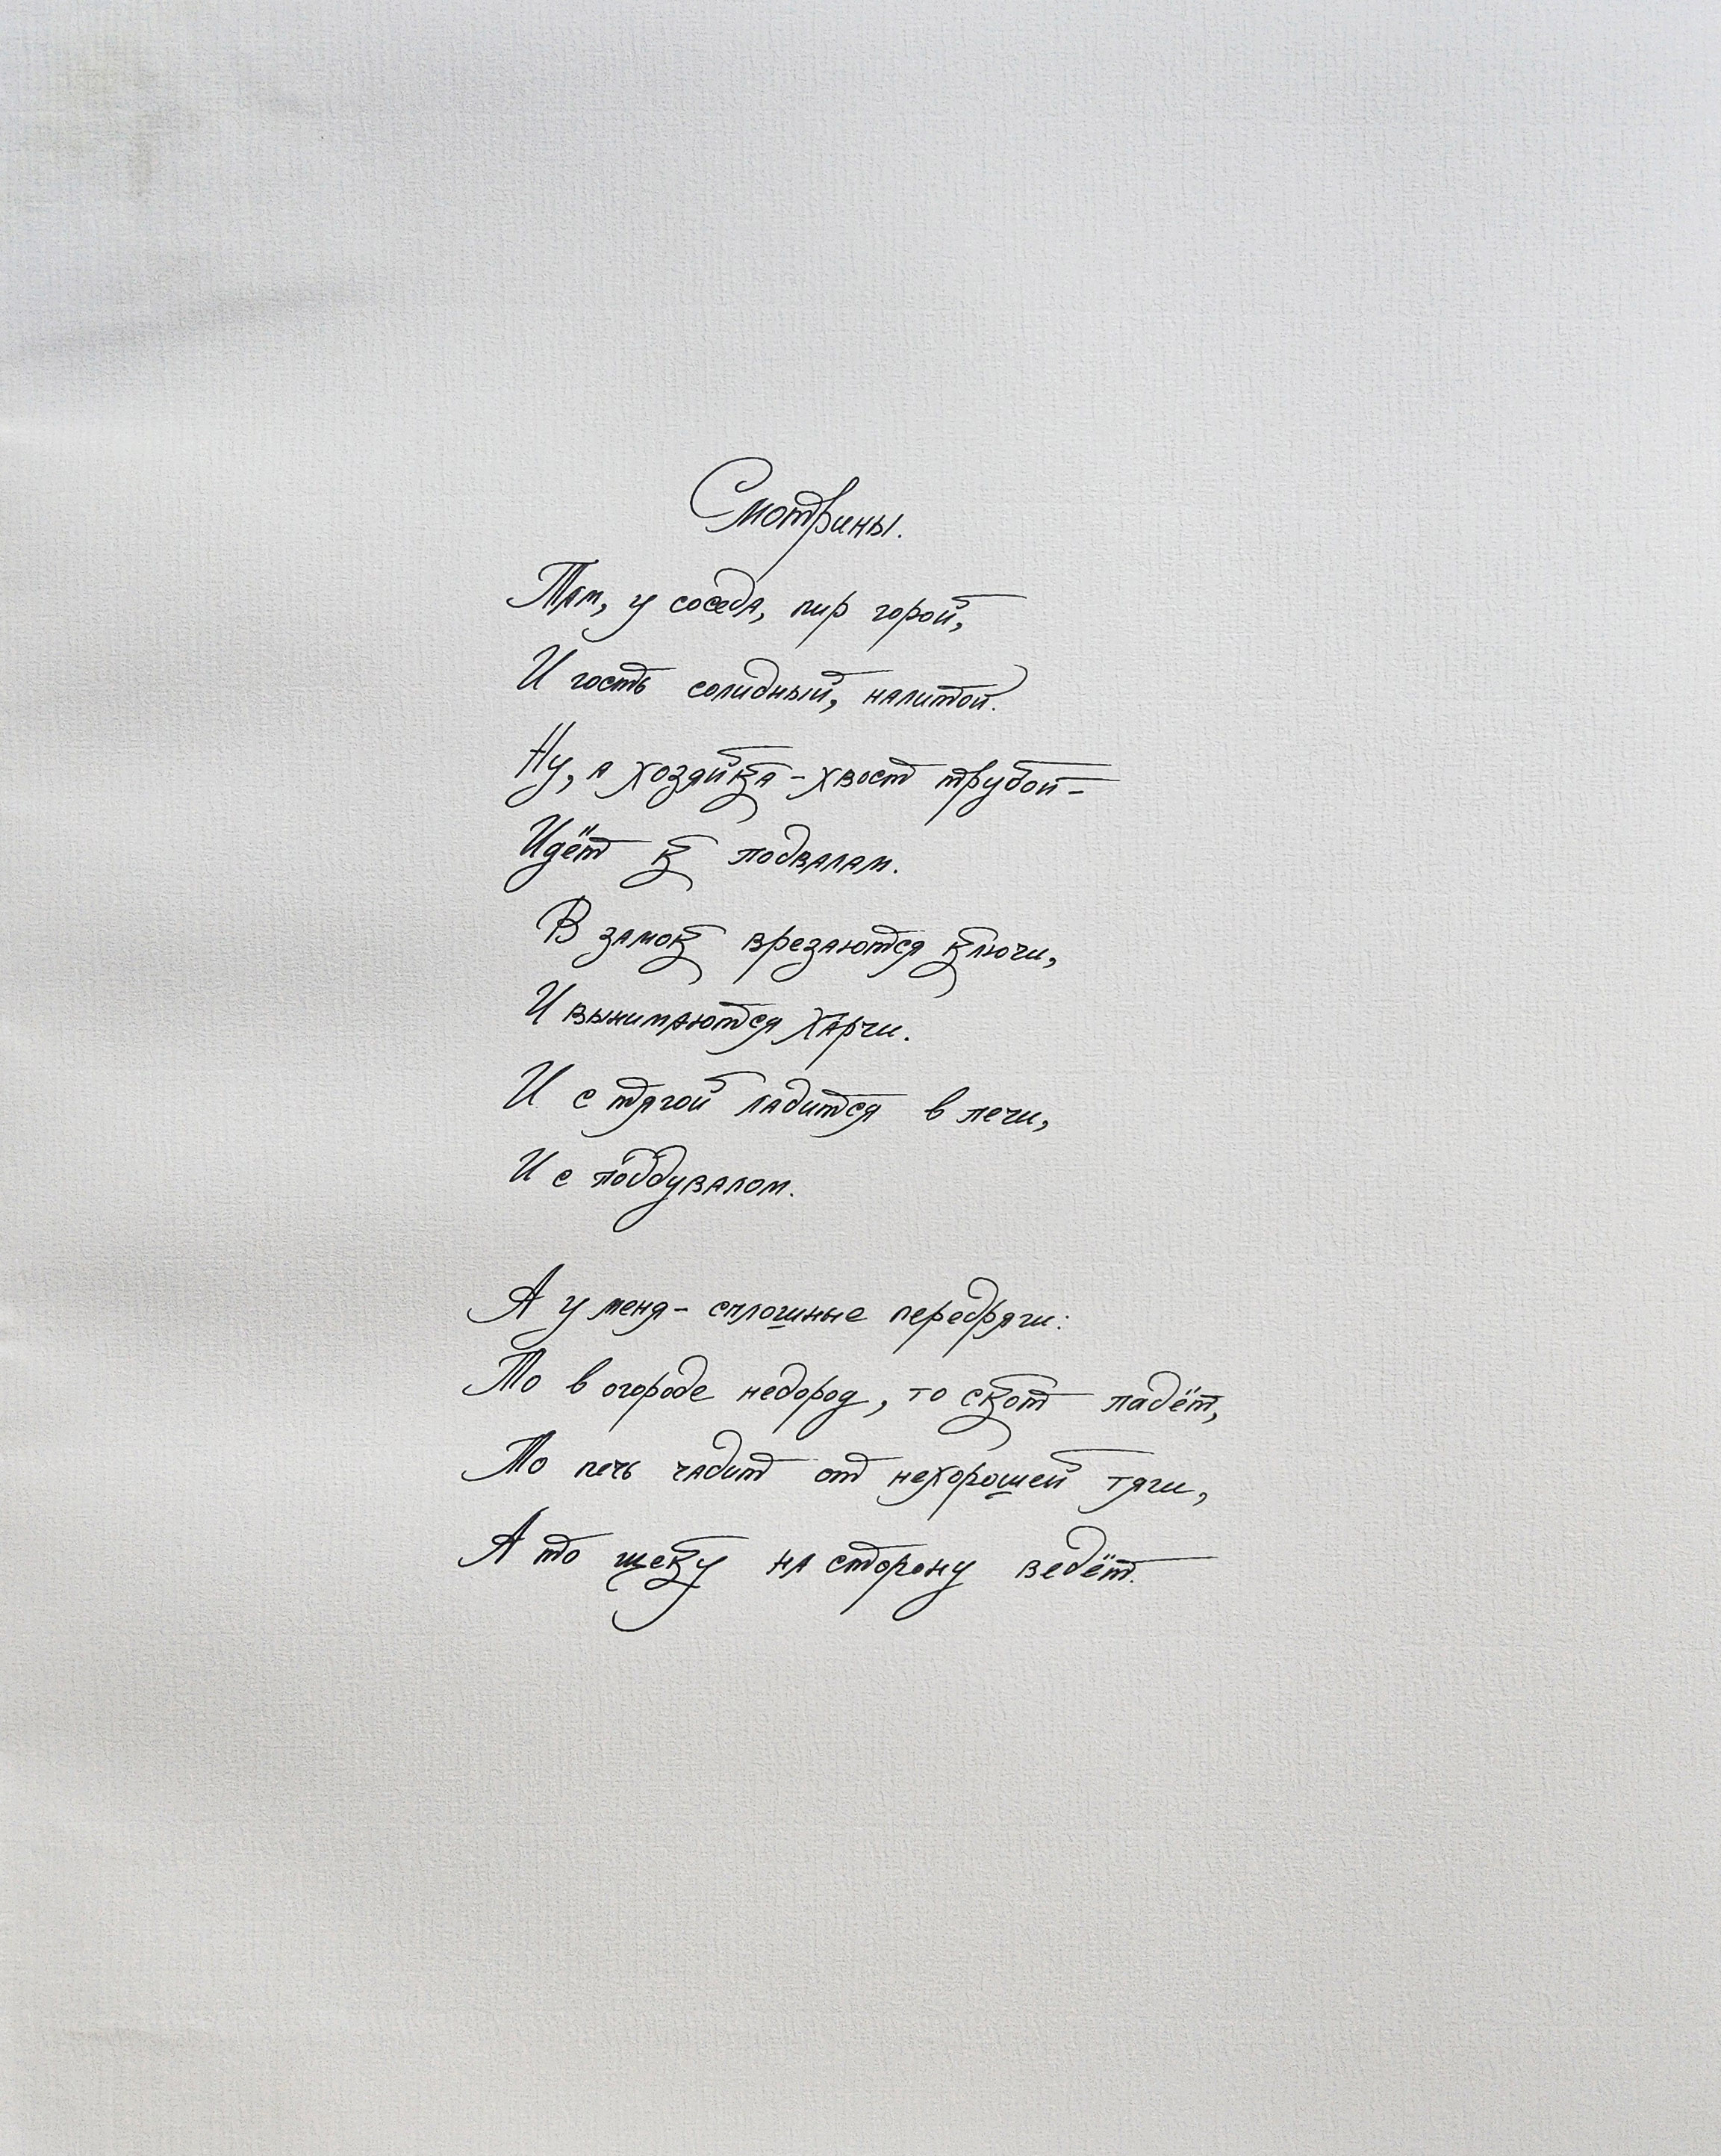 Смотрины.
Там, у соседа, пир горой,
И гость солидный, налитой.
Ну, а хозяйка - хвост трубой -
Идёт к подвалам.
В замок врезаются ключи,
И вынимаются харчи.
И с тягой ладится в печи,
И с поддувалом.
А у меня - сплошные передряги:
То в огороде недород, то скот падёт,
То печь чадит от нехорошей тяги,
А то щеку на сторону ведёт.